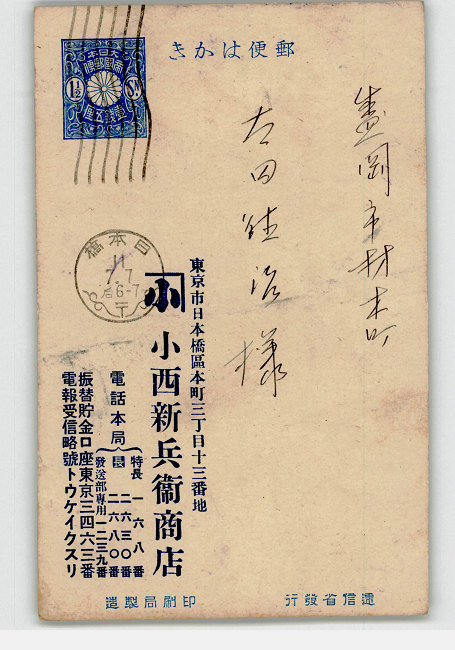 郵便はかき
大日本
帝國郵便
1½ Sn.
壹錢五厘
盛岡市材木町
太田 治 様
日本橋
11
7.7
后6-7
〒
小
東京市日本橋區本町三丁目十三番地
小西新兵衞商店
電話本局
特長 一六八番
長 二六三〇番
二六八〇番
發送部專用 一二三九番
振替貯金口座東京三四六三番
電報受信略號トウケイクスリ
遞信省發行
印刷局製造